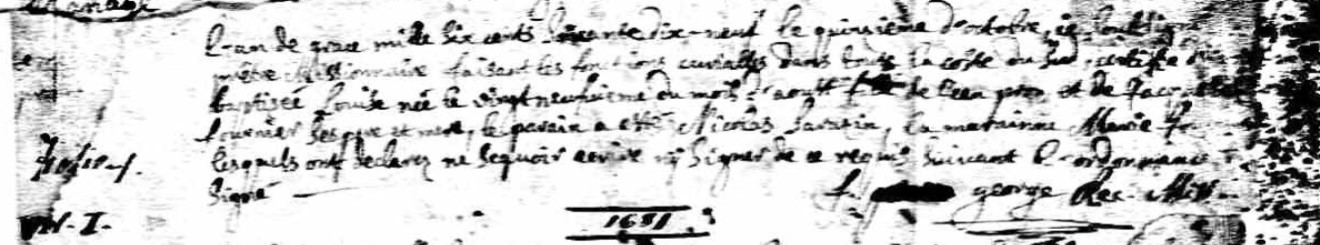 L-an de grace mille six cents soixante dix-neuf le quinsieme d'octobre, je soubsigné
prêtre Missionnaire faisant les fonctions curialles dans toute la coste du sud, certifie
baptisée Louise née le vingt neufvieme du mois d'aoust fille de Jean pron et de Jacqu
fournier ses pere et mere, le parain a esté Nicolas Sarazin, la marainne Marie
lesquels ont declarez ne sçavoir ecrire ny signer de ce requis suivant l-ordonnance
Signé
f. george Rec. Miss.
1681